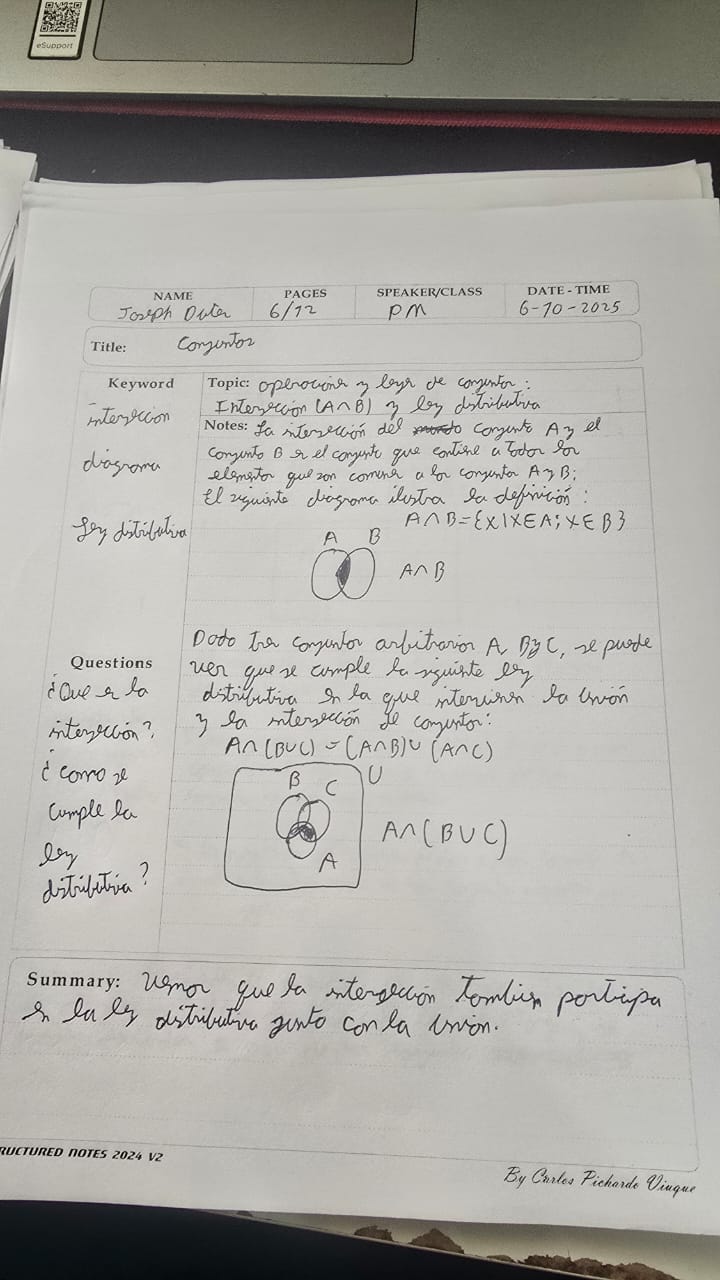 eSupport
NAME PAGES SPEAKER/CLASS DATE - TIME
Joseph 6/12 PM 6-10-2025
Title: Conjuntos
Keyword
intersección
diagrama
Ley distributiva
Topic: operaciones y leyes de conjuntos:
Intersección (A∩B) y ley distributiva
Notes: La intersección del conjunto A y el
conjunto B es el conjunto que contiene a todos los
elementos que son comunes a los conjuntos A y B;
El siguiente diagrama ilustra la definición:
A∩B={X|X∈A; X∈B}
A B
A∩B
Questions
¿Que es la
intersección?
¿como se
cumple la
ley
distributiva?
Dado tres conjuntos arbitrarios A, B y C, se puede
ver que se cumple la siguiente ley
distributiva en la que intervienen la unión
y la intersección de conjuntos:
A∩(B∪C) = (A∩B)∪(A∩C)
U
B C
A
A∩(B∪C)
Summary: Vemos que la intersección tambien participa
en la ley distributiva junto con la unión.
RUCTURED NOTES 2024 V2
By Carlos Pichardo Viuque